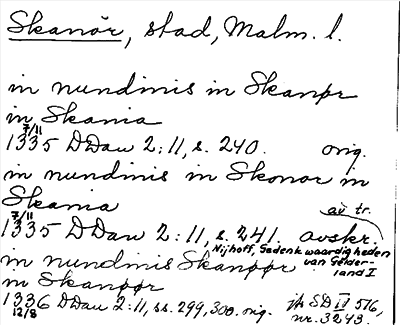 Skanör, stad, Malm. l.
in nundinis in Skanør
in Skania
7/11
1335 DDan 2:11, s. 240. orig.
in nundinis in Skonor in
Skania
av tr.
7/11
1335 DDan 2:11, s. 241. avskr.
Nijhoff, Gedenkwaardigheden
van Gelder-
land I
in nundinis Skanøør
in Skanøør
1336 DDan 2:11, ss. 299, 300. orig. jfr SD IV 516,
12/8
nr. 3243.